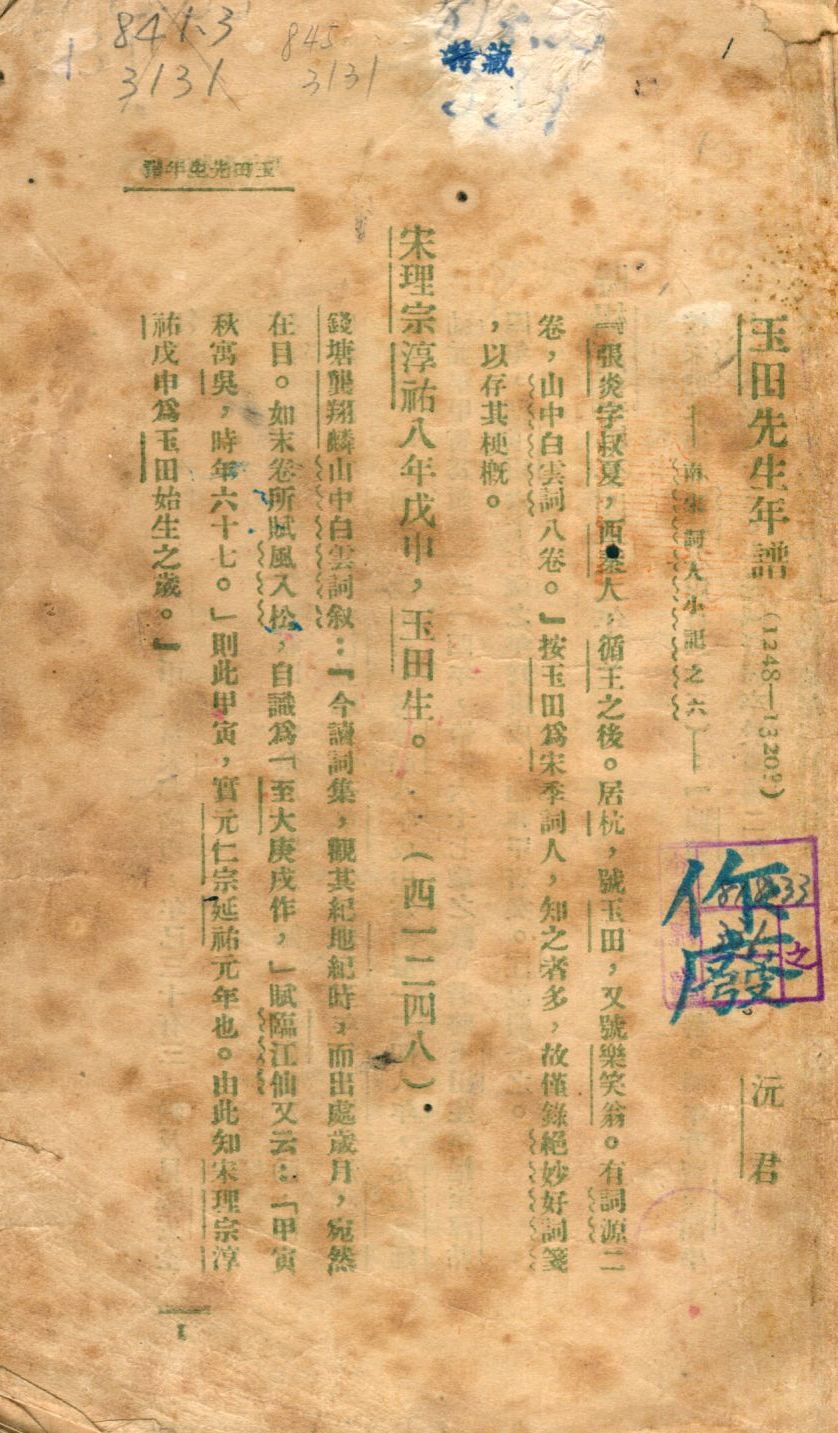 841.3
3131
845
3131
特藏
玉田先生年譜
玉田先生年譜 (1248—1320?)
——南宋詞人小記之六——
沅君
『張炎字叔夏，西秦人，循王之後。居杭，號玉田，又號樂笑翁。有詞源二
卷，山中白雲詞八卷。』按玉田爲宋季詞人，知之者多，故僅錄絕妙好詞箋
，以存其梗概。
宋理宗淳祐八年戊申，玉田生。（西一二四八）
錢塘龔翔麟山中白雲詞叙：『今讀詞集，觀其紀地紀時，而出處歲月，宛然
在目。如末卷所賦風入松，自識爲「至大庚戌作，」賦臨江仙又云：「甲寅
秋寓吳，時年六十七。」則此甲寅，實元仁宗延祐元年也。由此知宋理宗淳
祐戊申爲玉田始生之歲。』
作廢
之
1